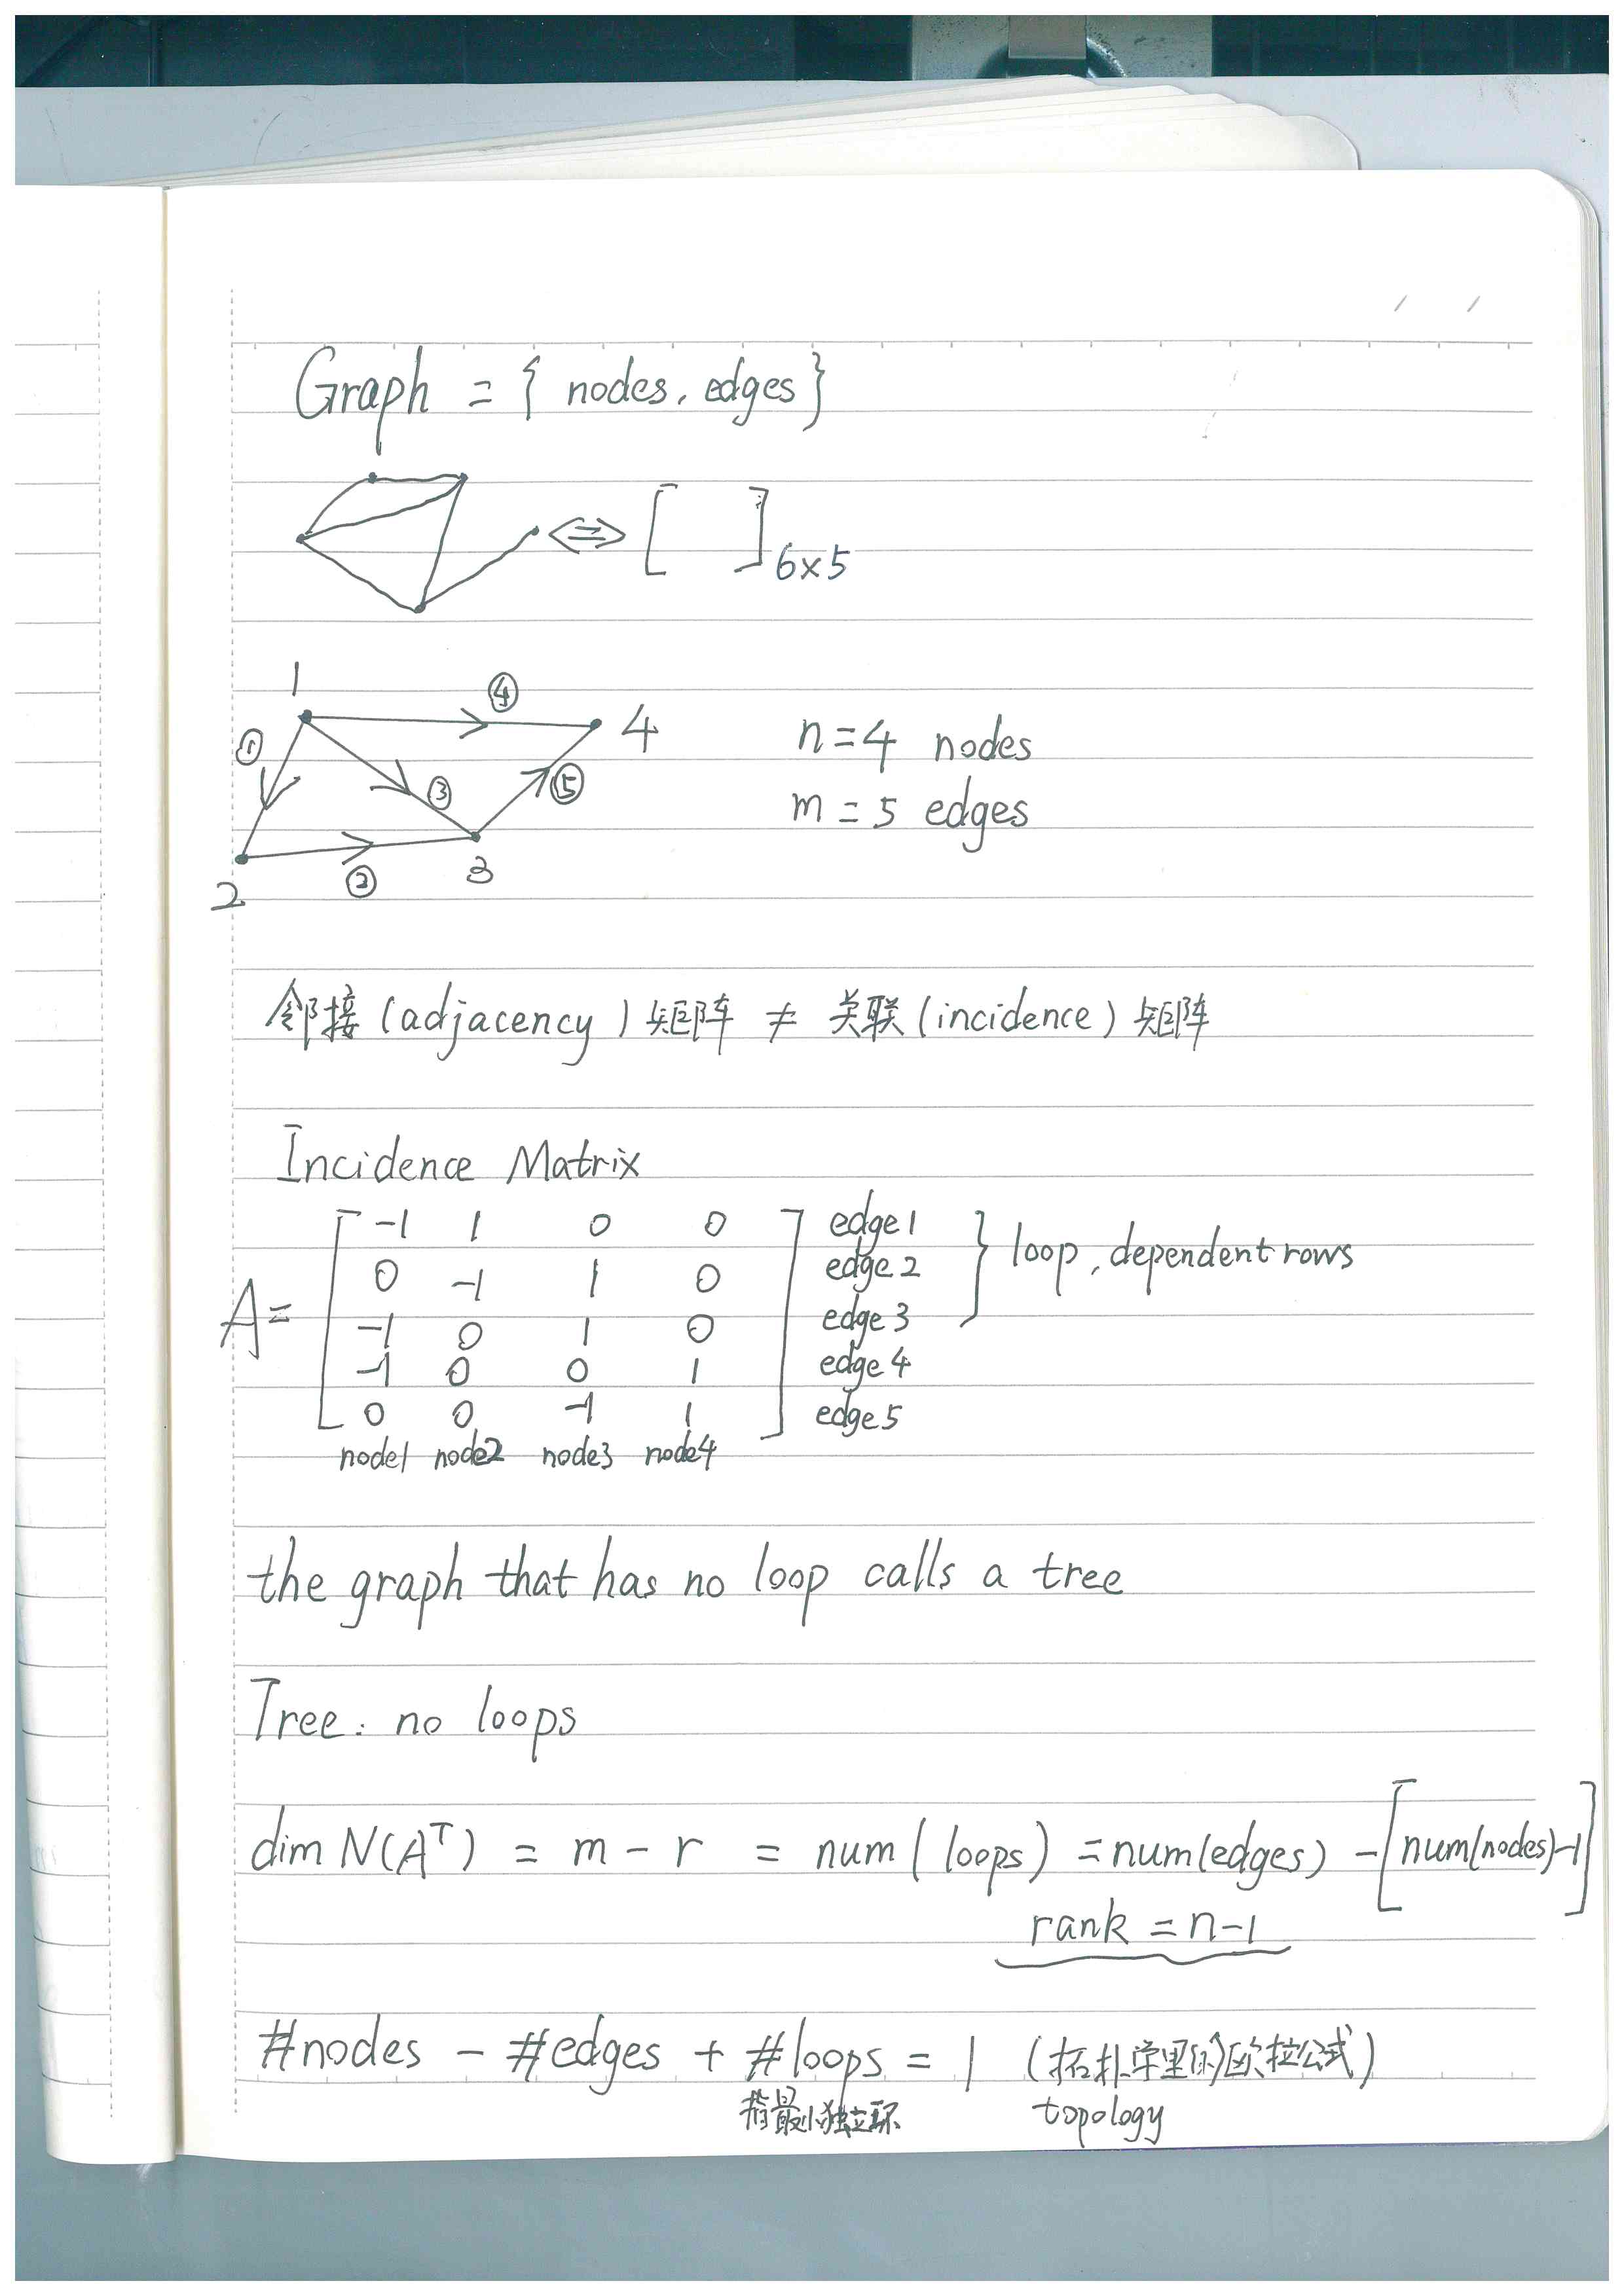 Graph = { nodes, edges}
⇔ [ ]6×5
1 ④ 4
① ③ ⑤
2 ② 3
n=4 nodes
m=5 edges
邻接(adjacency)矩阵 ≠ 关联(incidence)矩阵
Incidence Matrix
A=
-1 1 0 0 edge1
0 -1 1 0 edge2
-1 0 1 0 edge3
-1 0 0 1 edge4
0 0 -1 1 edge5
} loop, dependent rows
node1 node2 node3 node4
the graph that has no loop calls a tree
Tree: no loops
dim N(Aᵀ) = m - r = num(loops) = num(edges) - [num(nodes)-1]
rank = n-1
#nodes - #edges + #loops = 1 (拓扑学里的欧拉公式)
指最小独立环 topology